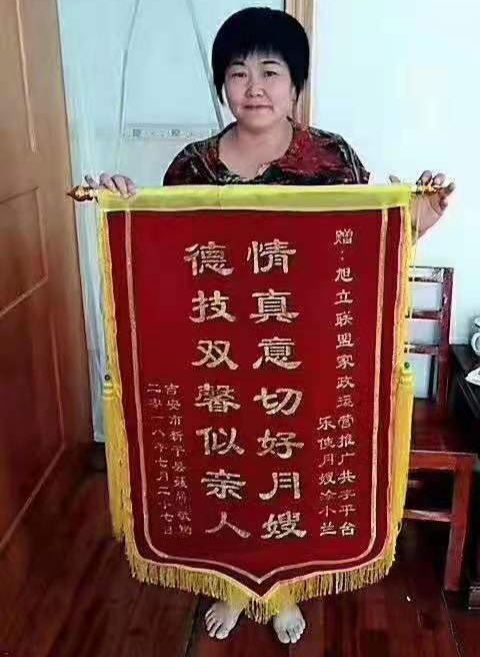 赠：旭立联盟家政运营推广共享平台
乐使月嫂涂小兰
情真意切好月嫂
德技双馨似亲人
吉安市新干县
二零一八年七月二十七日